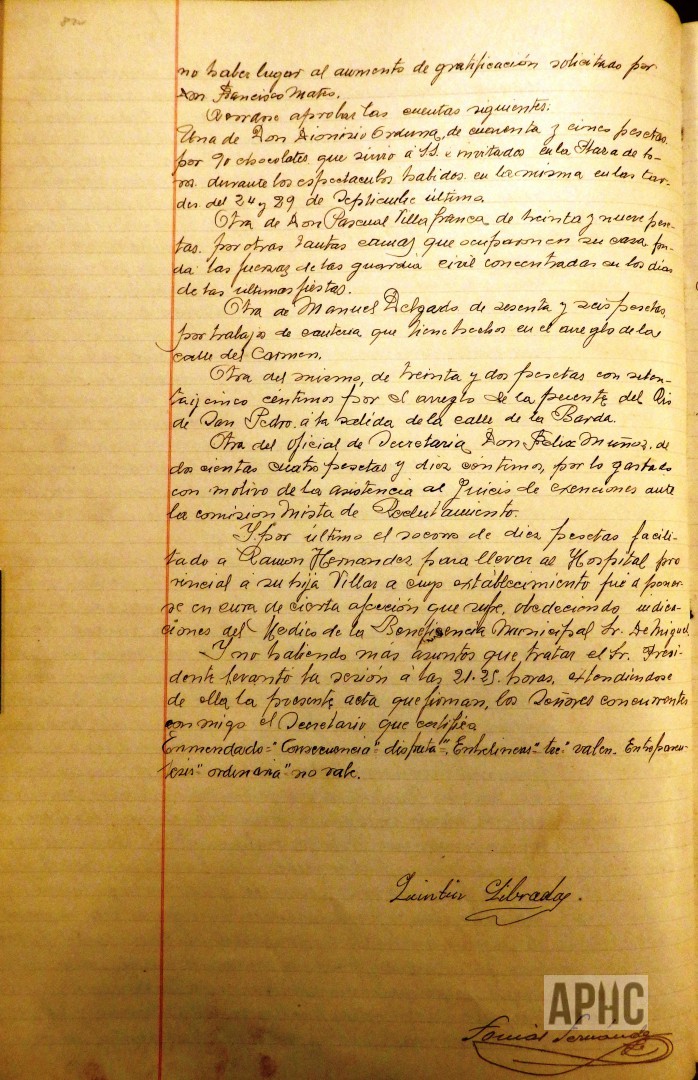 no haber lugar al aumento de gratificación solicitado por
Don Francisco Mateo.
aprobar las cuentas siguientes:
Una de Don Dionisio Orduna, de cuarenta y cinco pesetas
por 90 chocolates que sirvio á SS. e invitados en la Plaza de to-
ros durante los espectaculos habidos en la misma en las tar-
des del 24 y 29 de Septiembre último.
Otra de Don Pascual Villafranca de treinta y nueve pese-
tas por otras tantas camas que ocuparon en su casa fon-
da las fuerzas de las guardia civil concentradas en los dias
de las ultimas fiestas.
Otra de Manuel Delgado de sesenta y seis pesetas,
por trabajo de canteria que tiene hechos en el arreglo de la
calle del Carmen.
Otra del mismo, de treinta y dos pesetas con seten-
taycinco céntimos por el arreglo de la puente del Rio
de San Pedro á la salida de la calle de la Barda.
Otra del oficial de Secretaria Don Felix Muñoz, de
dos cientas cuatro pesetas y diez centimos, por lo gastado
con motivo de la asistencia al Juicio de exenciones ante
la comision Mista de Reclutamiento.
Y por último el socorro de diez pesetas facili-
tado a Ramon Hernandez para llevar al Hospital pro
vincial a su hija Villar a cuyo establecimiento fué a poner-
se en cura de cierta afección que sufre, obedeciendo indica-
ciones del Medico de la Beneficencia Municipal Sr. De Miguel.
Y no habiendo mas asuntos que tratar el Sr. Presi-
dente levantó la sesión á las 21.25 horas, extendiéndose
de ella la presente acta que firman, los Señores concurrentes
conmigo el Secretario que certifica
Enmendado="Consecuencia" disputa". Entrelineas= valen. Entreparen-
tesis" ordinaria" no vale.
Quintin Librada.
APHC
Tomás Fernández